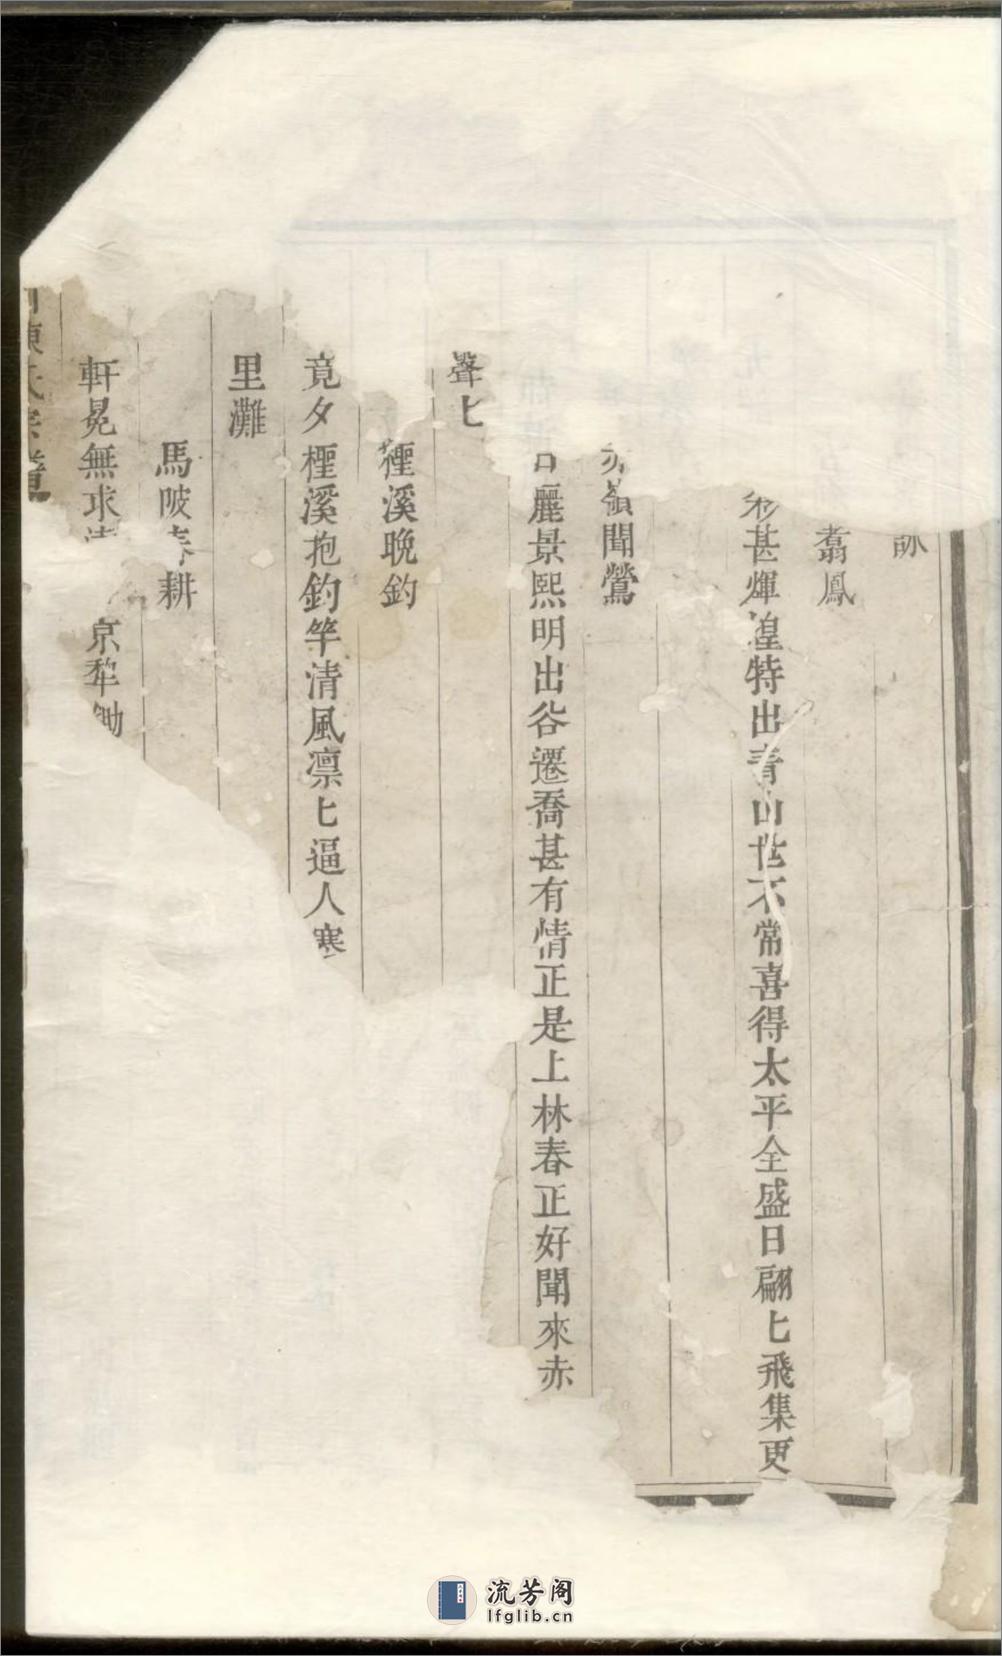 詠
翥鳳
彩甚煇煌特出青山世不常喜得太平全盛日翩匕飛集更
赤嶺聞鶯
日麗景熙明出谷遷喬甚有情正是上林春正好聞來赤
聲匕
䄇溪晚釣
竟夕桱溪抱釣竿清風凛匕逼人寒
里灘
馬陂春耕
軒冕無求 京犂鋤
陳氏宗譜
流芳阁
lfglib.cn